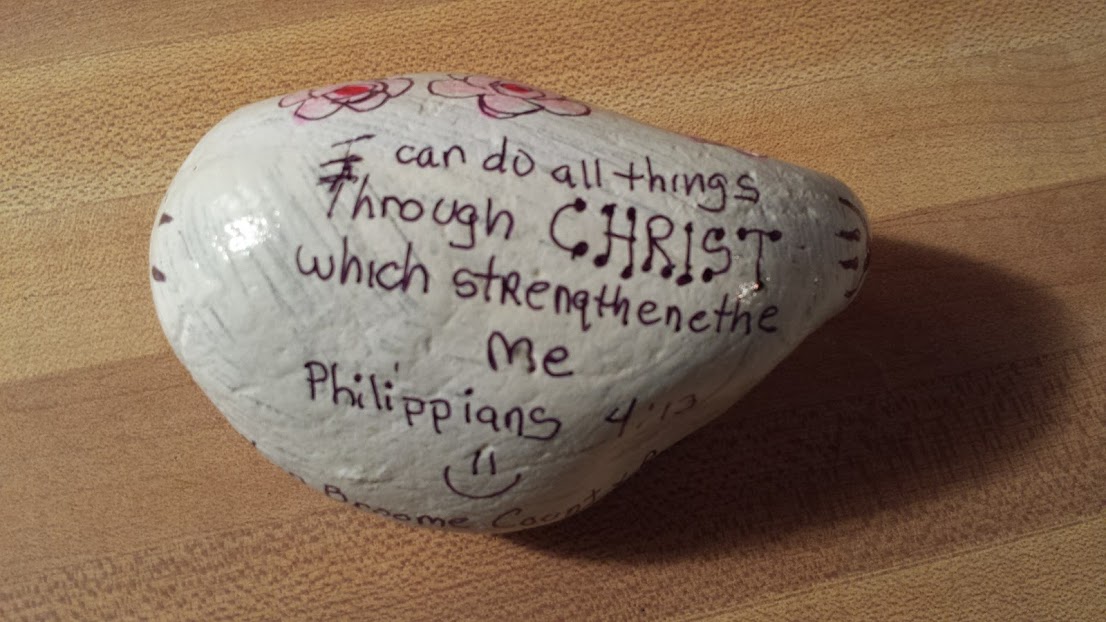 I can do all things
Through CHRIST
which strengthenethe
me
Philippians 4:13
Broome Count